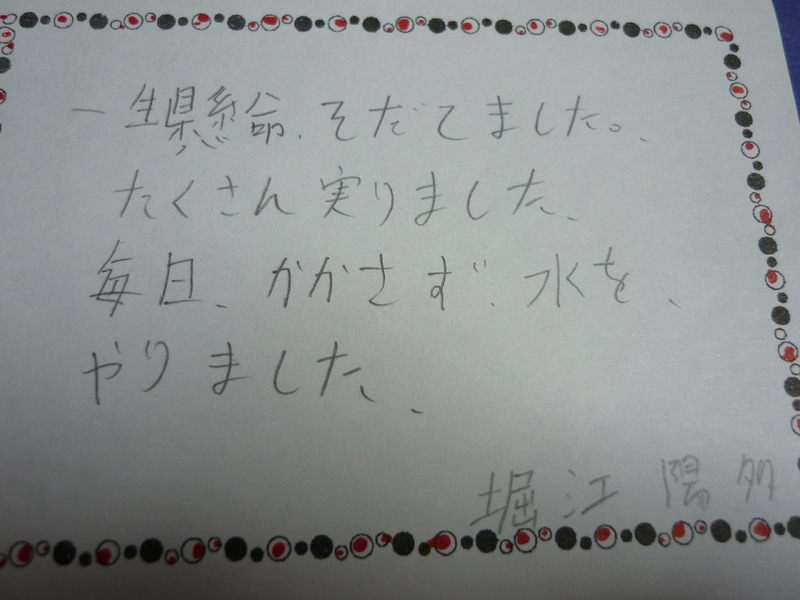 一生懸命、そだてました。、
たくさん実りました、
毎日、かかさず、水を、
やりました、、
堀江陽多